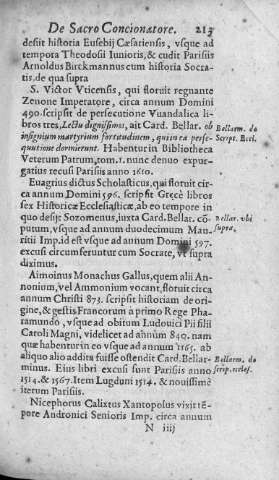 De Sacro Concionatore. 213
desijt historia Eusebij Cæsariensis, vsque ad
tempora Theodosii Iunioris, & cudit Parisiis
Arnoldus Birckmannus cum historia Socra-
tis, de qua supra
S. Victor Vticensis, qui floruit regnante
Zenone Imperatore, circa annum Domini
490. scripsit de persecutione Vuandalica li-
bros tres, Lectu dignissimos, ait Card. Bellar. ob
insignium martyrium fortitudinem, qui in ea perse-
quutione dormierunt. Habentur in Bibliotheca
Veterum Patrum, tom. 1. nunc denuo expur-
gatius recusi Parisiis anno 1610.
Euagrius dictus Scholasticus, qui floruit cir-
ca annum Domini 596. scripsit Grecè libros
sex Historiæ Ecclesiasticæ, ab eo tempore in
quo desijt Sozomenus, iuxta Card. Bellar. cõ-
putum, vsque ad annum duodecimum Mau-
ritii Imp. id est vsque ad annum Domini 597.
excusi circumferuntur cum Socrate, vt supra
diximus.
Aimoinus Monachus Gallus, quem alii An-
nonium, vel Ammonium vocant, floruit circa
annum Christi 873. scripsit historiam de ori-
gine, & gestis Francorum à primo Rege Pha-
ramundo, vsque ad obitum Ludouici Pii filii
Caroli Magni, videlicet ad annum 840. nam
quæ habentur in eo vsque ad annum 1165. ab
aliquo alio addita fuisse ostendit Card. Bellar-
minus. Eius libri excusi sont Parisiis anno
1514. & 1567. Item Lugduni 1514. & nouissimè
iterum Parisiis.
Nicephorus Calixtus Xantopolus vixit tẽ-
pore Andronici Senioris Imp. circa annum
N iiij
Bellarm. de
Script. Eccl.
Bellar. vbi
supra.
Bellarm. de
scrip. eccles.